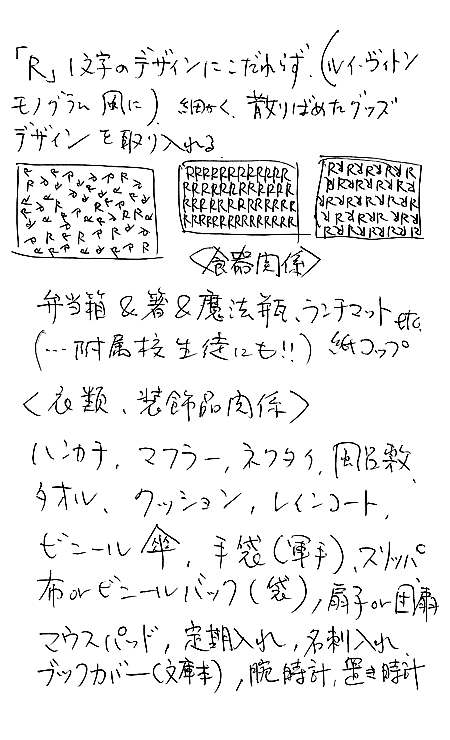 「R」1文字のデザインにこだわらず、(ルイ・ヴィトン
モノグラム風に) 細かく、散りばめたグッズ
デザインを取り入れる
RRRRRRRRRRRR
RRRRRRRRRRRR
RRRRRRRRRRRR
RRRRRRRRRRRR
<食器関係>
弁当箱&箸&魔法瓶、ランチマット etc.
(…附属校生徒にも!!) 紙コップ
<衣類、装飾品関係>
ハンカチ、マフラー、ネクタイ、風呂敷
タオル、クッション、レインコート、
ビニール傘、手袋(軍手)、スリッパ
布orビニールバック(袋)、扇子or団扇
マウスパッド、定期入れ、名刺入れ
ブックカバー(文庫本)、腕時計、置き時計